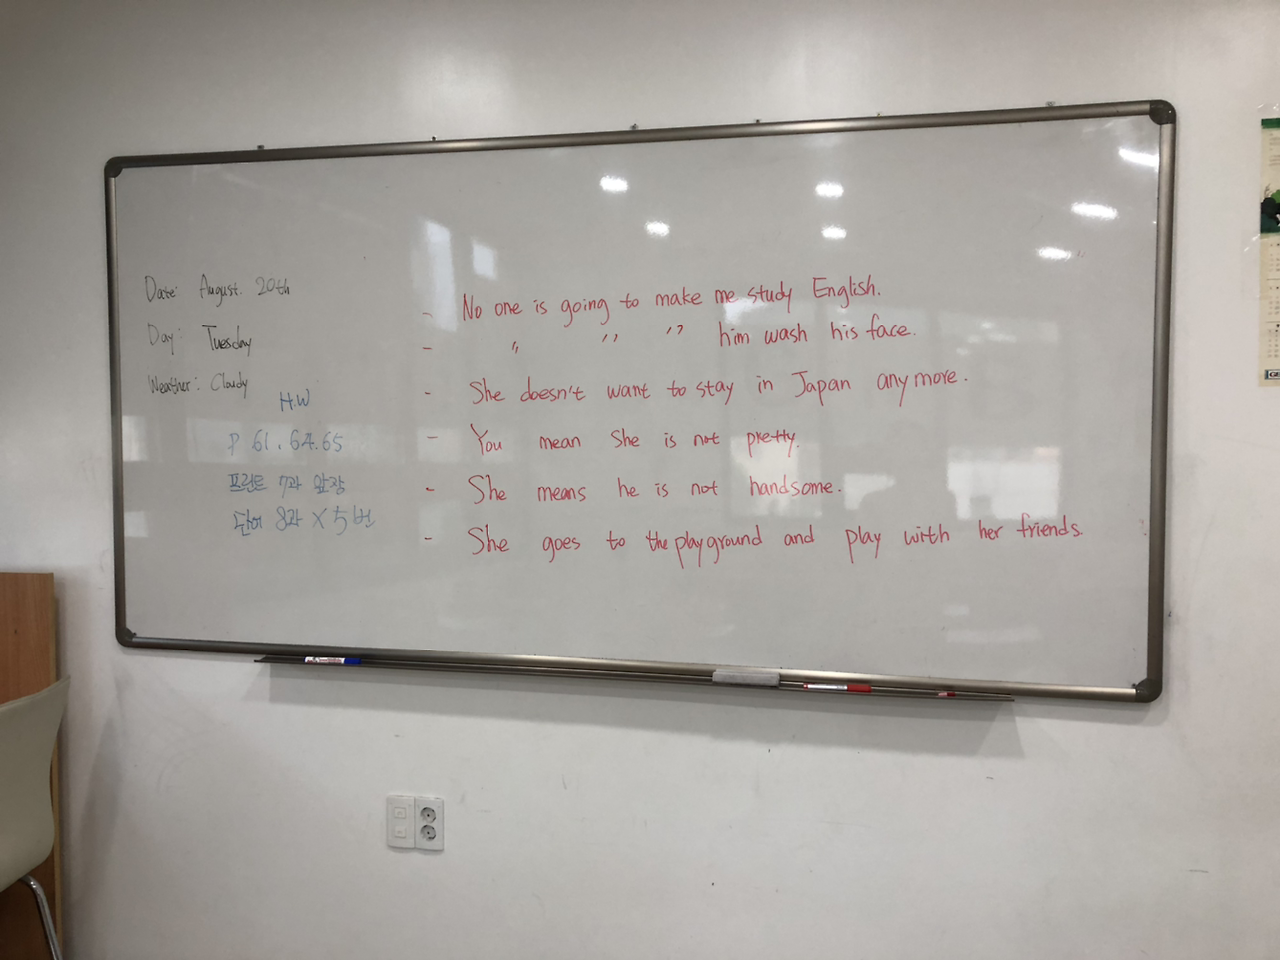 Date: August. 20th
Day: Tuesday
Weather: Cloudy
H.W
P 61, 64.65
프린트 7과 앞장
단어 8과 X 5번
- No one is going to make me study English.
- " " " him wash his face.
- She doesn't want to stay in Japan anymore.
- You mean She is not pretty.
- She means he is not handsome.
- She goes to the playground and play with her friends.